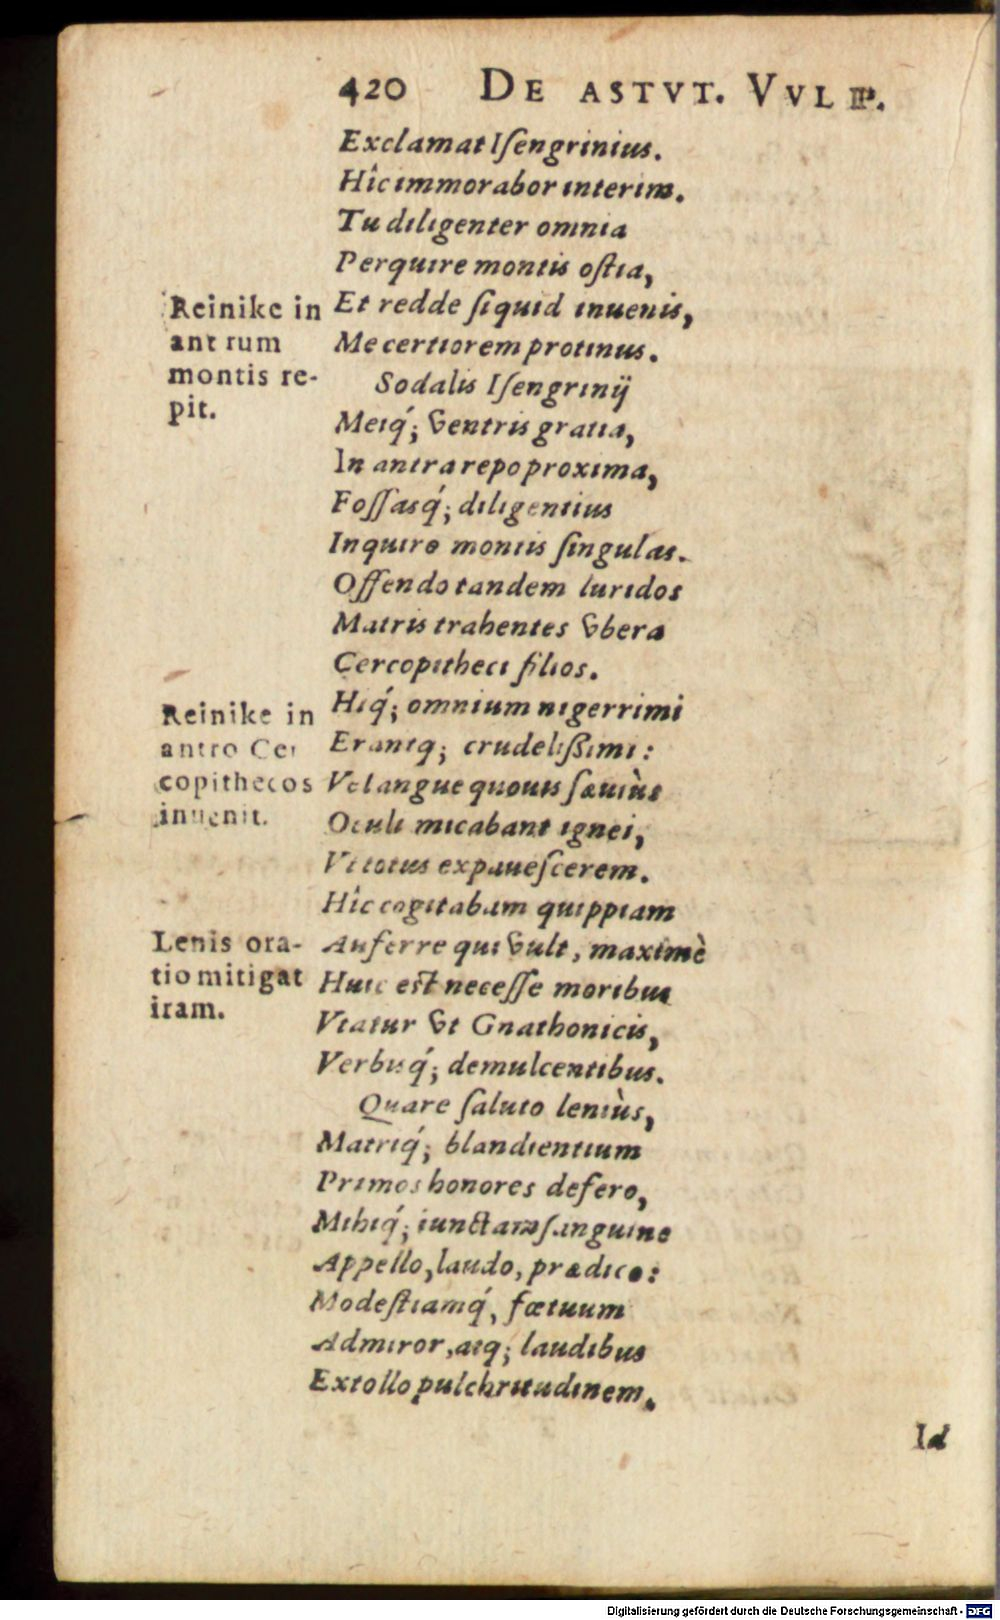 420 DE ASTVT. VVLP.
Exclamat Iſengrinius.
Hîc immorabor interim.
Tu diligenter omnia
Perquire montis oſtia,
Et redde ſiquid inuenis,
Me certiorem protinus.
Reinike in
antrum
montis re-
pit.
Sodalis Iſengrinij
Meiq́; ventris gratia,
In antra repo proxima,
Foſſasq́; diligentius
Inquiro montis ſingulas.
Offendo tandem luridos
Matris trahentes vbera
Cercopitheci filios.
Hiq́; omnium nigerrimi
Erantq; crudelißimi:
Vel angue quouis ſæuiùs
Oculi micabant ignei,
Vt totus expaueſcerem.
Reinike in
antro Cer
copithecos
inuenit.
Hîc cogitabam quippiam
Auferre qui vult, maximè
Huic est neceſſe moribus
Vtatur vt Gnathonicis,
Verbisq́; demulcentibus.
Lenis ora-
tio mitigat
iram.
Quare ſaluto leniùs,
Matriq́; blandientium
Primos honores defero,
Mihiq́; iunctam ſanguine
Appello, laudo, prædico:
Modeſtiamq́, fœtuum
Admiror, atq; laudibus
Extollo pulchritudinem.
Id
Digitalisierung gefördert durch die Deutsche Forschungsgemeinschaft - DFG